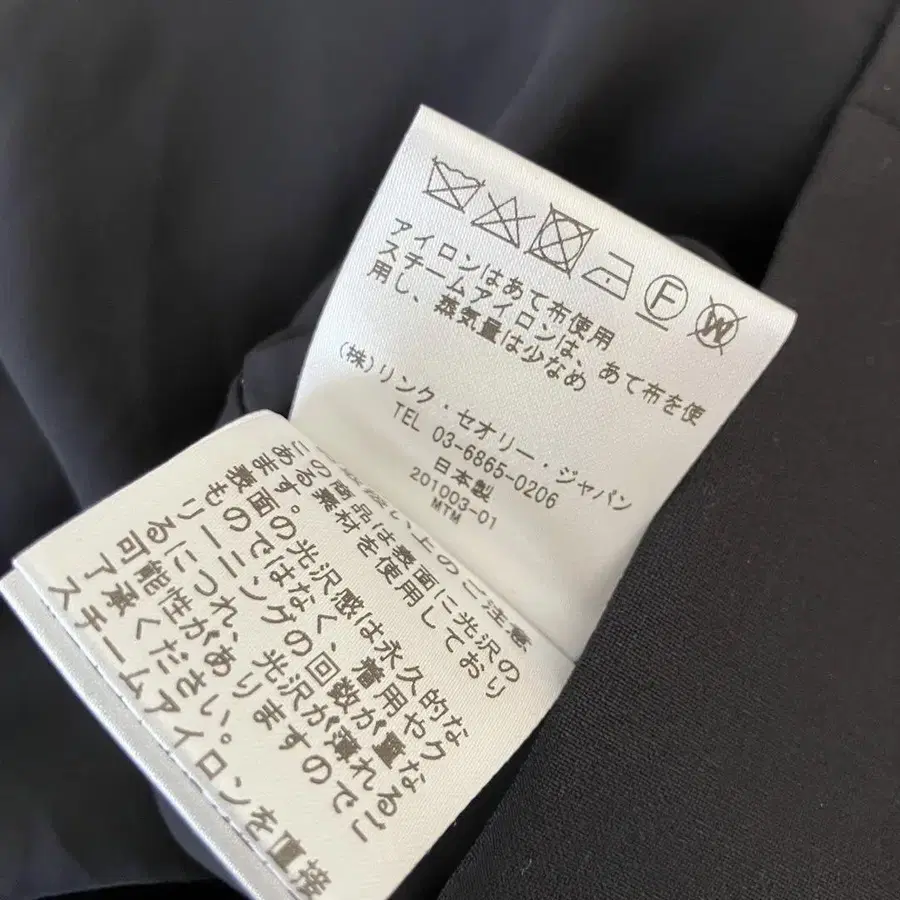 アイロンはあて布使用
スチームアイロンは、あて布を使
用し、蒸気量は少なめ
(株)リンク・セオリー・ジャパン
TEL 03-6865-0206
日本製
201003-01
MTM
上のご注意
この商品は表面に光沢の
ある素材を使用しており
ます。
表面の光沢感は永久的な
ものではなく、着用やク
リーニングの回数が重な
るにつれ、光沢が薄れる
可能性がありますのでご
了承ください。
スチームアイロンを直接